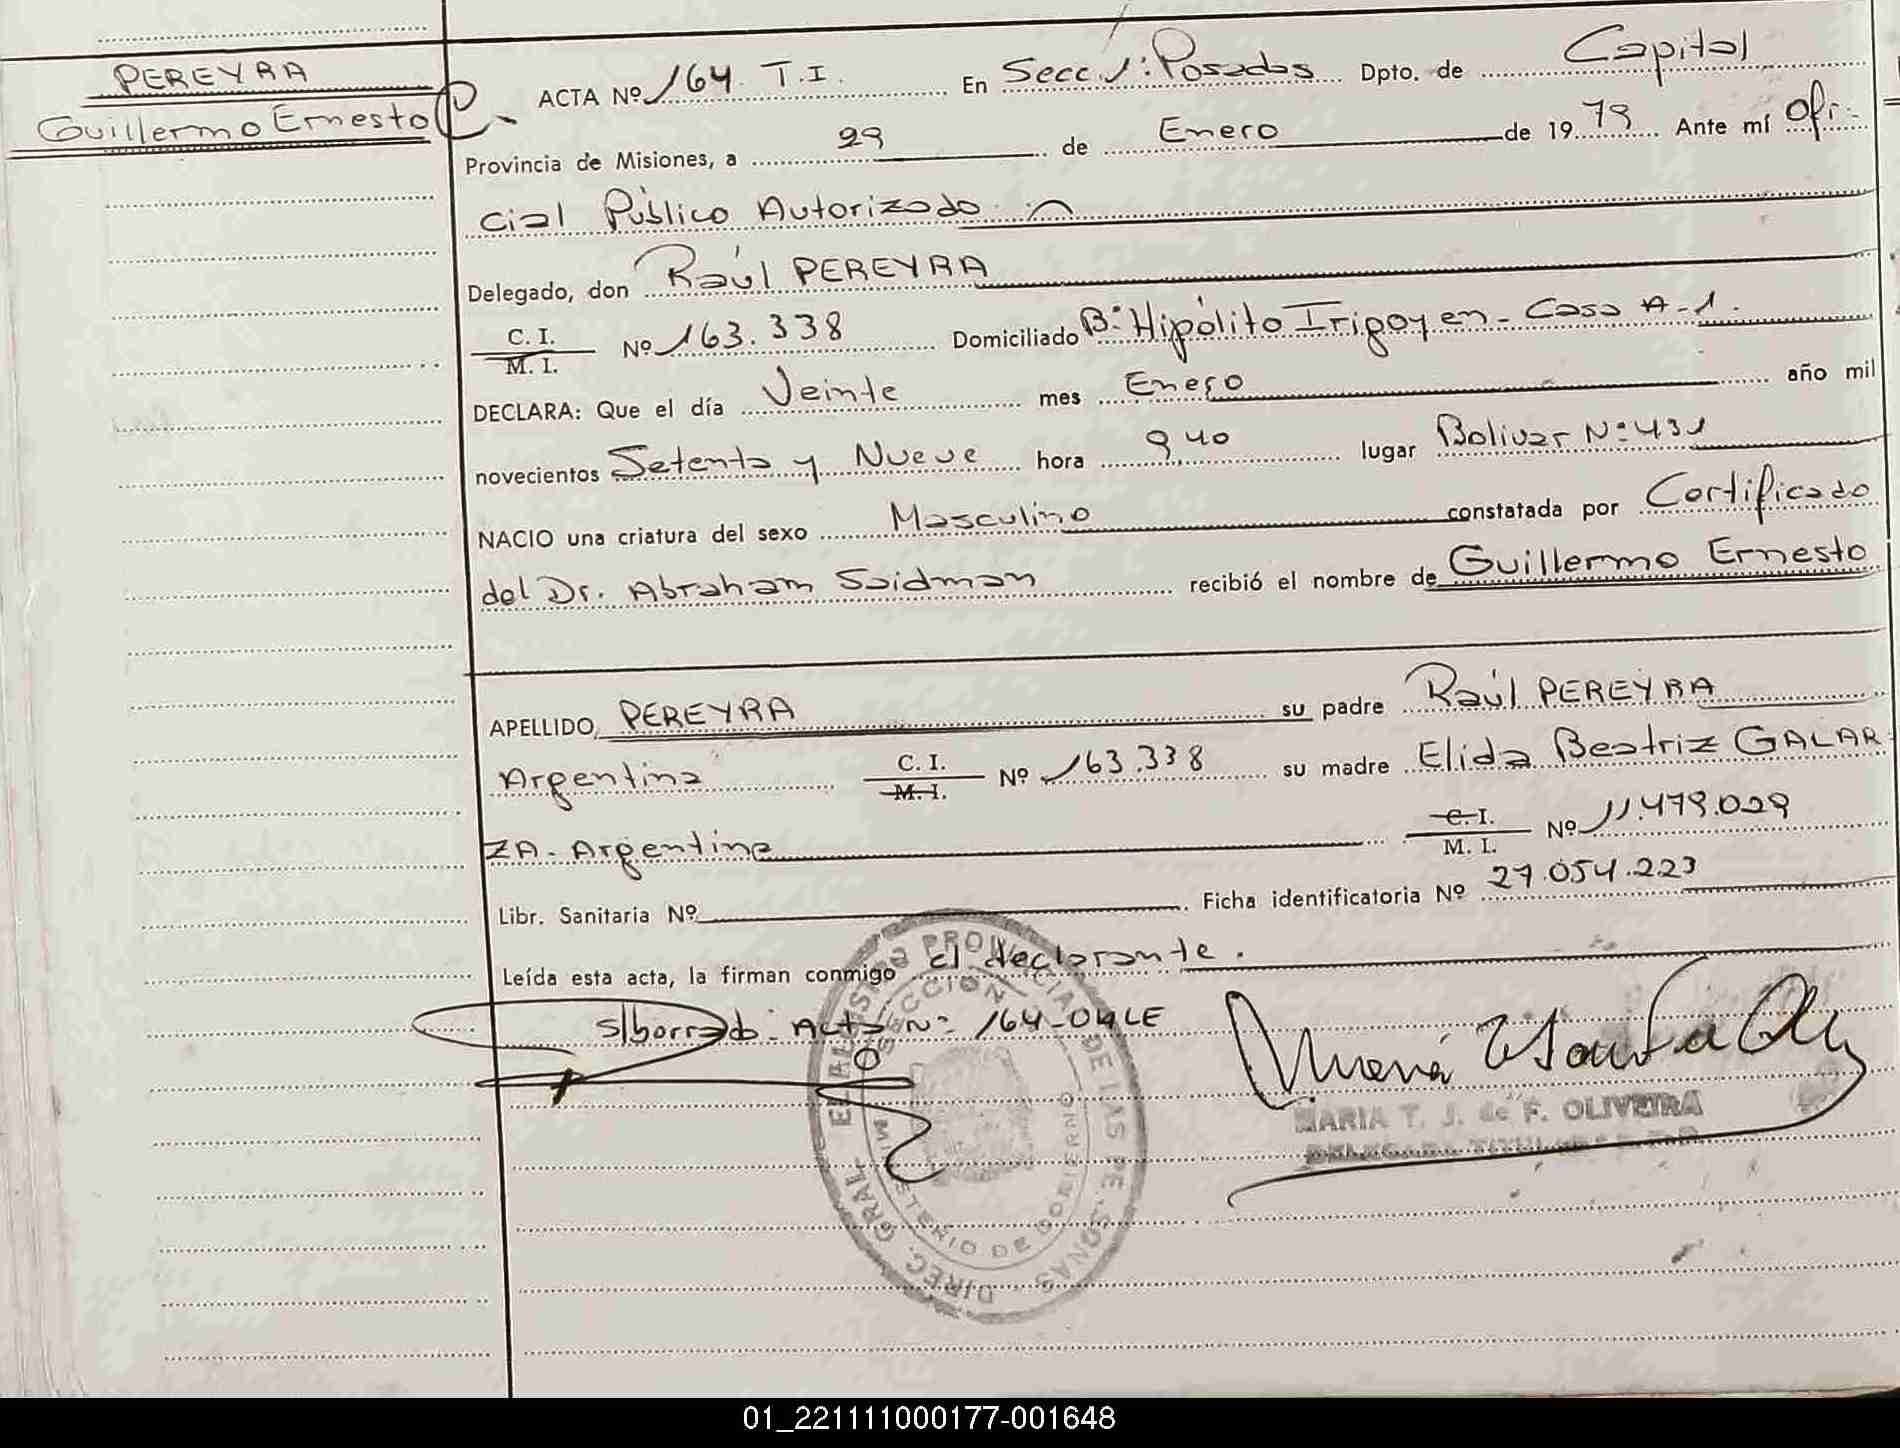 PEREYRA
Guillermo Ernesto
ACTA Nº 164 T.I. En Secc. 1ª: Posadas Dpto. de Capital
Provincia de Misiones, a 29 de Enero de 1979 Ante mí Ofi-
cial Público Autorizado
Delegado, don Raúl PEREYRA
C. I.
M. I. Nº 163.338 Domiciliado Bº Hipólito Irigoyen - Casa A-1.
DECLARA: Que el día Veinte mes Enero año mil
novecientos Setenta y Nueve hora 9,40 lugar Bolivar Nº 431
NACIO una criatura del sexo Masculino constatada por Certificado
del Dr. Abraham Saidman recibió el nombre de Guillermo Ernesto
APELLIDO, PEREYRA su padre Raúl PEREYRA
Argentina C. I. M. I. Nº 163.338 su madre Elida Beatriz GALAR
ZA - Argentina C. I. M. I. Nº 11.479.029
Libr. Sanitaria Nº Ficha identificatoria Nº 27.054.223
Leída esta acta, la firman conmigo el declarante.
S/borrado: Acta Nº 164 - VALE
MARIA T. J. de F. OLIVEIRA
DELEGADA TITULAR
DIREC. GRAL. REGISTRO PROVINCIAL DE LAS PERSONAS
MINISTERIO DE GOBIERNO
SECCION
01_221111000177-001648